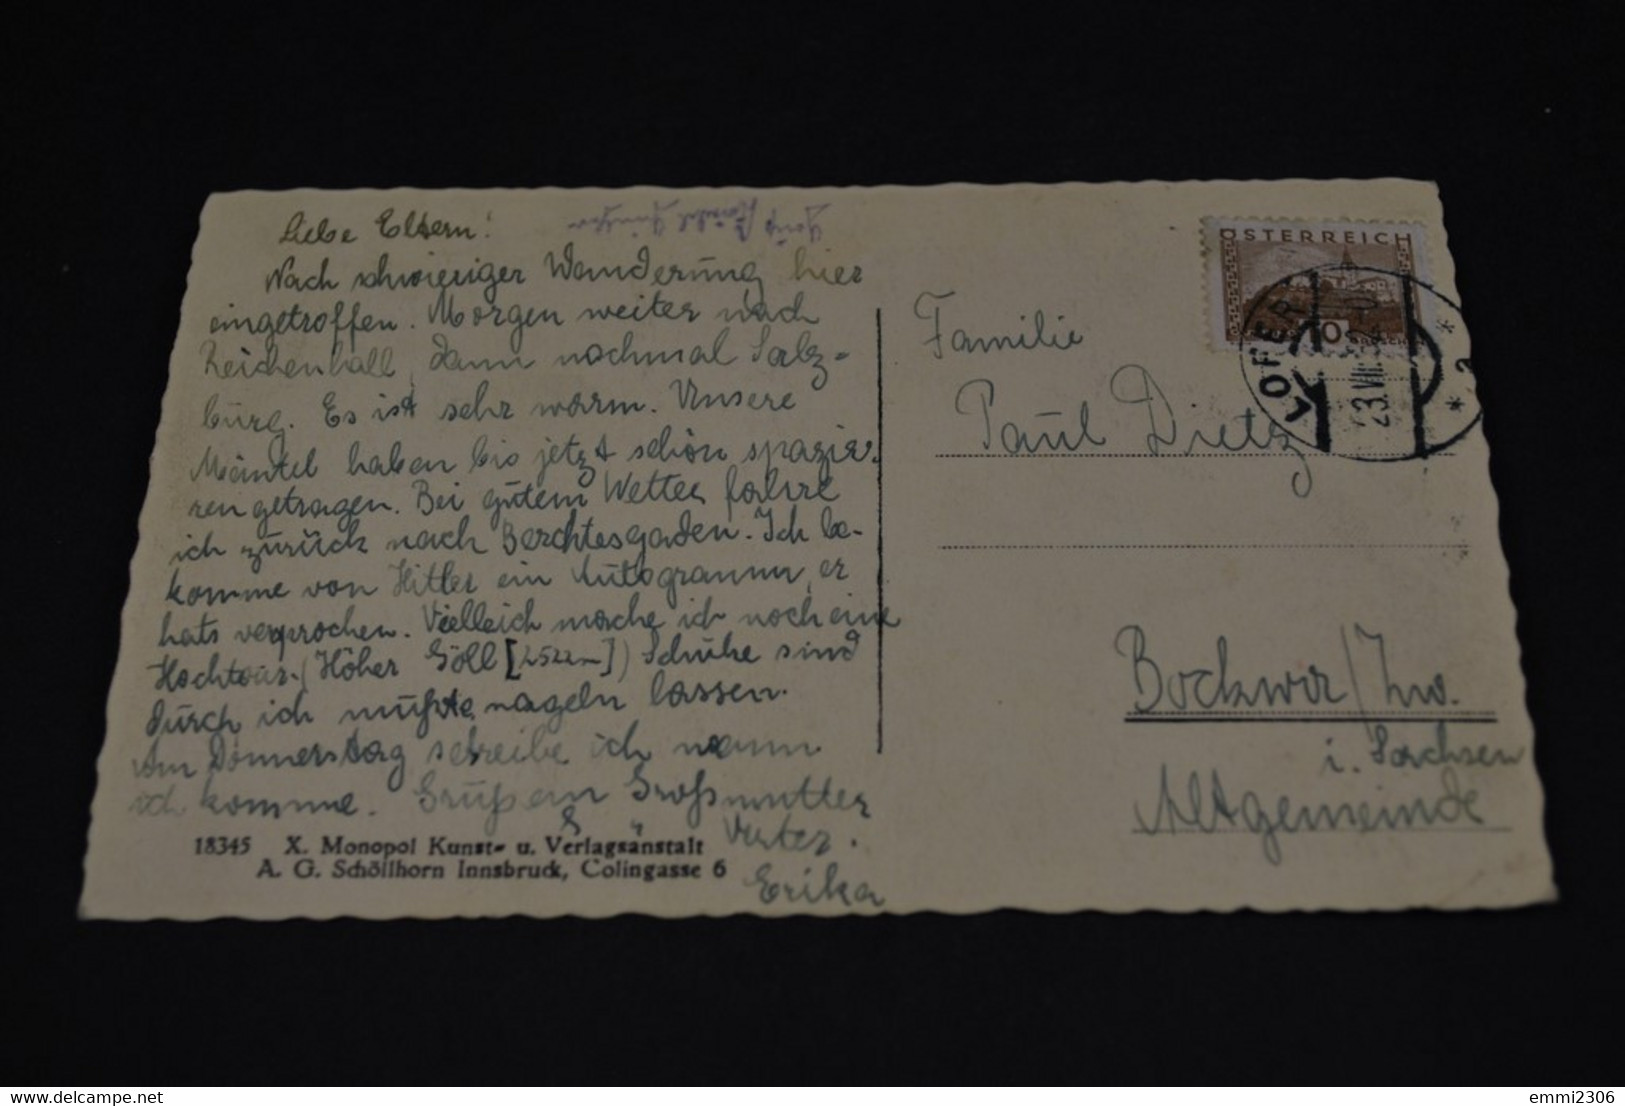 Liebe Eltern!
Nach schwieriger Wanderung hier
eingetroffen. Morgen weiter nach
Reichenhall, dann nochmal Salz-
burg. Es ist sehr warm. Unsere
Mäntel haben bis jetzt schön spazie-
rengetragen. Bei gutem Wetter fahre
ich zurück nach Berchtesgaden. Ich be-
komme von Hitler ein Autogramm, er
hats versprochen. Vielleich mache ich noch eine
Hochtour. (Hoher Göll [2522m]) Schuhe sind
durch ich mußte nageln lassen.
Am Donnerstag schreibe ich wann
ich komme. Großmutter
Vater.
Erika
18345 X. Monopol Kunst- u. Verlagsanstalt
A. G. Schöllhorn Innsbruck, Colingasse 6
ÖSTERREICH
10 GROSCHEN
LOFER
23.VIII.
* * a *
Familie
Paul Dietz
Bockwa/Zw.
i. Sachsen
Altgemeinde
emmi2306